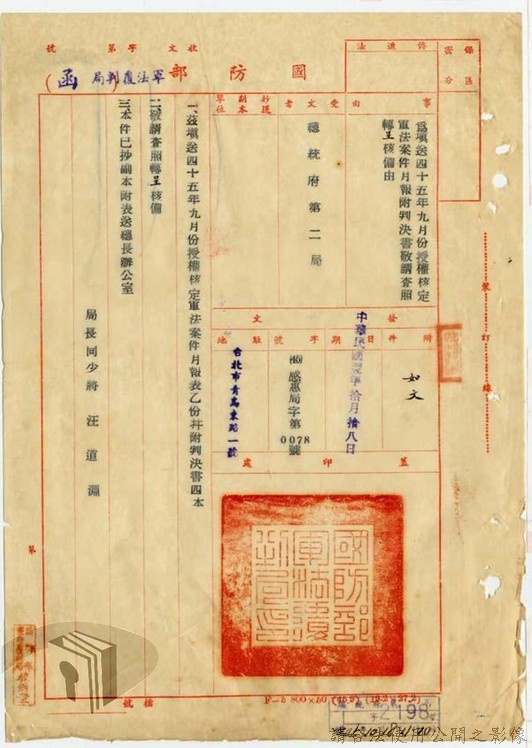 收文 字第 號
國防部軍法覆判局(函)
保密區分
傳遞法
事由
為填送四十五年九月份授權核定軍法案件月報附判決書敬請查照轉呈核備由
受文者
總統府第二局
抄送副本單位
發文
附件
如文
日期
中華民國 年拾月拾八日
字號
感惠局字第0078號
駐地
台北市青島東路一號
蓋印處
國防部軍法覆判局印
一、茲填送四十五年九月份授權核定軍法案件月報表乙份并附判決書四本
二、敬請查照轉呈核備
三、本件已抄副本附表送總長辦公室
局長同少將 汪道淵
裝訂線
第
檔號
2198
請合法使用公開之影像